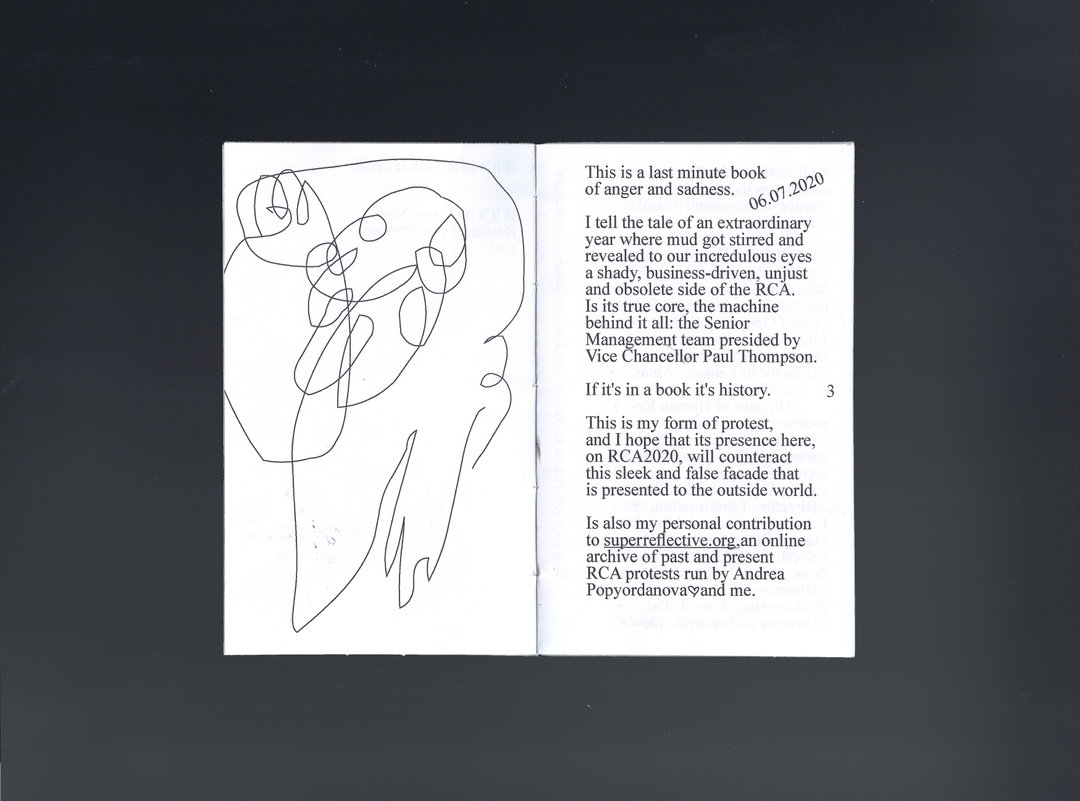 This is a last minute book
of anger and sadness.
06.07.2020
I tell the tale of an extraordinary
year where mud got stirred and
revealed to our incredulous eyes
a shady, business-driven, unjust
and obsolete side of the RCA.
Is its true core, the machine
behind it all: the Senior
Management team presided by
Vice Chancellor Paul Thompson.
If it's in a book it's history.
3
This is my form of protest,
and I hope that its presence here,
on RCA2020, will counteract
this sleek and false facade that
is presented to the outside world.
Is also my personal contribution
to superreflective.org,an online
archive of past and present
RCA protests run by Andrea
Popyordanova♡and me.